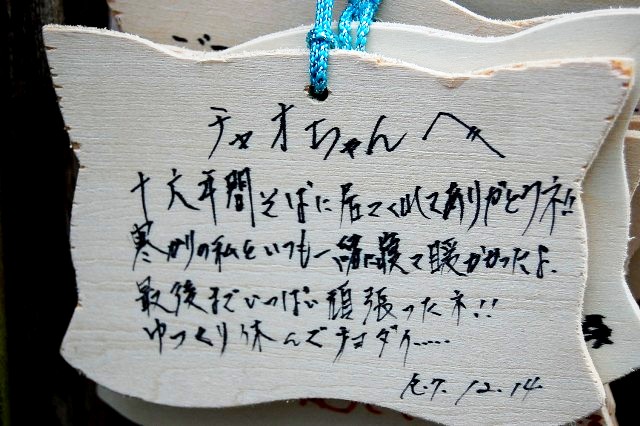 チャオちゃんへ
十六年間そばに居てくれてありがとうネ!!
寒がりの私をいつも一緒に寝て暖かかったよ.
最後までいっぱい頑張ったネ!!
ゆっくり休んでチョダイ.....
12.14